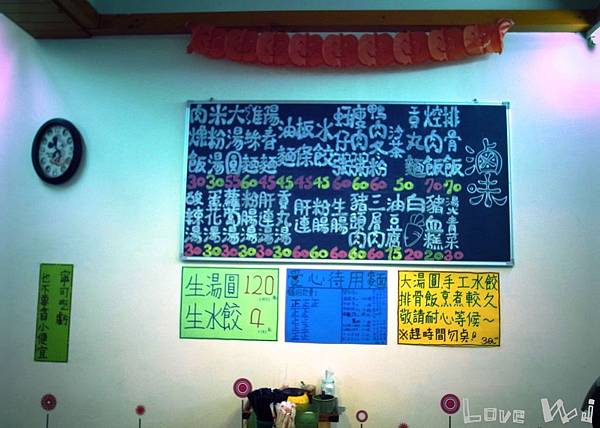 滷味
排骨飯 70
焢肉飯 70
貢丸麵
沙茶
鴨肉冬粉 60
瘦肉粥 60
蚵仔粥 60
水餃 45
板條 45
油麵 45
陽春麵 45
大湯圓 55
米粉湯
肉燥飯 30
燙青菜 30
豬血糕 20
白
油豆腐 15
三層肉 60
豬頭肉 60
生腸 60
粉腸 60
肝連 60
貢丸湯 30
肝連湯 30
粉腸湯 30
蘿蔔湯 30
蛋花湯 30
酸辣湯 30
寧可吃虧
生湯圓 120
生水餃 4
心待用麵
大湯圓手工水餃
排骨飯烹煮較久
敬請耐心等候～
※趕時間勿点!
Love Wj